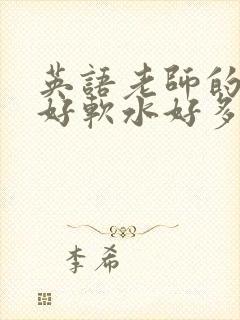 英語老師的
好軟水好多
李希